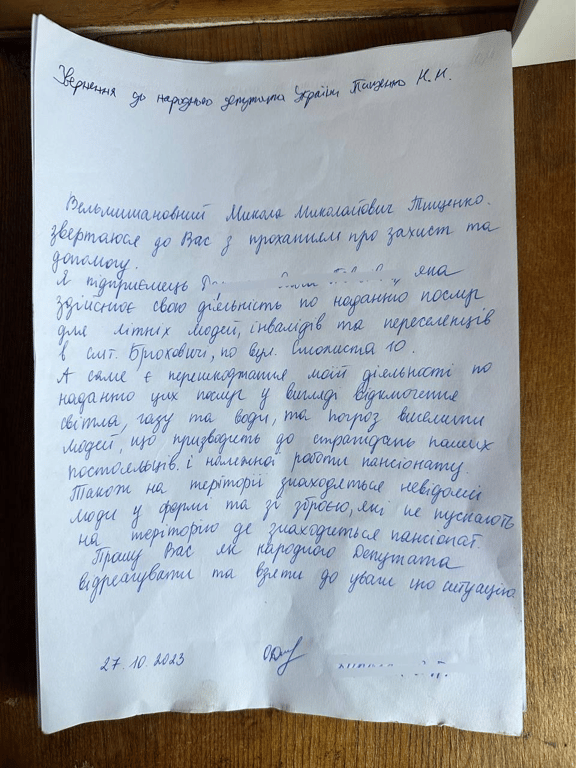 Звернення до народного депутата України Тищенко М. М.
Вельмишановний Микола Миколайович Тищенко.
звертаюся до Вас з проханням про захист та
допомогу.
Я підприємець яка
здійснює свою діяльність по наданню послуг
для літніх людей, інвалідів та переселенців
в смт. Брюховичі, по вул. Смолиста 10.
А саме є перешкоджання моїй діяльності по
наданню цих послуг у вигляді відключення
світла, газу та води, та погроз виселити
людей, що призводить до страждань наших
постояльців і належної роботи пансіонату.
Також на теріторії знаходяться невідомі
люди у формі та зі зброєю, які не пускають
на теріторію де знаходиться пансіонат.
Прошу Вас як народного Депутата
відреагувати та взяти до уваги цю ситуацію
27.10.2023